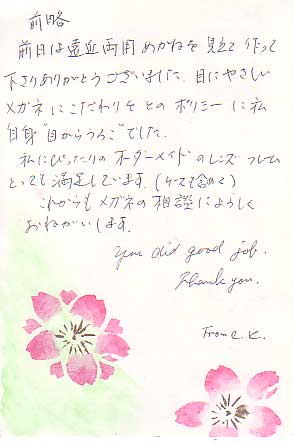 前略
前日は遠近両用めがねを見立て作って
下さりありがとうございました。目にやさしい
メガネにこだわりをもとのポリシーに私
自身“目からうろこ”でした。
私にぴったりのオーダーメイドのレンズ フレーム
とっても満足しています。(ケースも含めて)
これからもメガネの相談によろしく
おねがいします。
You did good job.
Thank you.
From C. K.